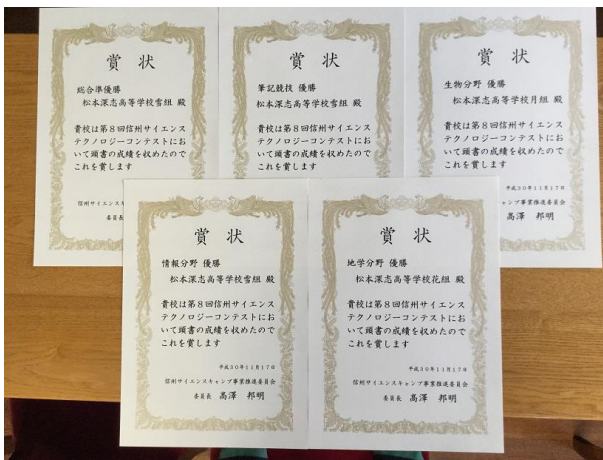 賞状
総合準優勝
松本深志高等学校雪組 殿
貴校は第8回信州サイエンス
テクノロジーコンテストにお
いて頭書の成績を収めたので
これを賞します
信州サイエンスキ
委員長
賞状
筆記競技 優勝
松本深志高等学校雪組 殿
貴校は第8回信州サイエンス
テクノロジーコンテストにお
いて頭書の成績を収めたので
これを賞します
賞状
生物分野 優勝
松本深志高等学校月組 殿
貴校は第8回信州サイエンス
テクノロジーコンテストにお
いて頭書の成績を収めたので
これを賞します
平成30年11月17日
キャンプ事業推進委員会
高澤 邦明
賞状
情報分野 優勝
松本深志高等学校雪組 殿
貴校は第8回信州サイエンス
テクノロジーコンテストにお
いて頭書の成績を収めたので
これを賞します
平成30年11月17日
信州サイエンスキャンプ事業推進委員会
委員長 高澤 邦明
賞状
地学分野 優勝
松本深志高等学校花組 殿
貴校は第8回信州サイエンス
テクノロジーコンテストにお
いて頭書の成績を収めたので
これを賞します
平成30年11月17日
信州サイエンスキャンプ事業推進委員会
委員長 高澤 邦明